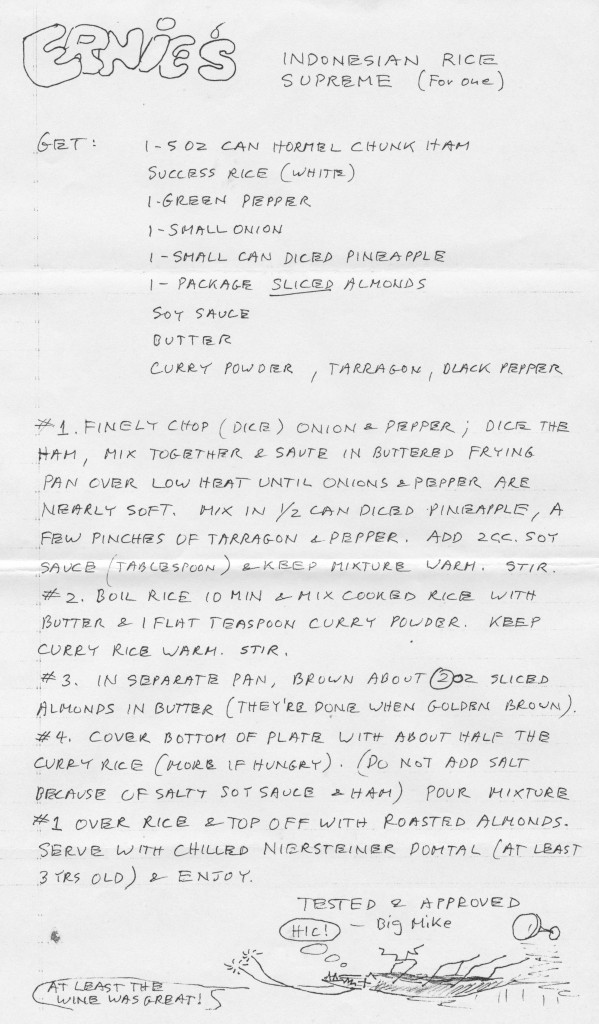 ERNIE'S
INDONESIAN RICE
SUPREME (For one)
GET:
1-5 OZ CAN HORMEL CHUNK HAM
SUCCESS RICE (WHITE)
1-GREEN PEPPER
1-SMALL ONION
1-SMALL CAN DICED PINEAPPLE
1- PACKAGE SLICED ALMONDS
SOY SAUCE
BUTTER
CURRY POWDER, TARRAGON, BLACK PEPPER
#1. FINELY CHOP (DICE) ONION & PEPPER; DICE THE
HAM, MIX TOGETHER & SAUTE IN BUTTERED FRYING
PAN OVER LOW HEAT UNTIL ONIONS & PEPPER ARE
NEARLY SOFT. MIX IN 1/2 CAN DICED PINEAPPLE, A
FEW PINCHES OF TARRAGON & PEPPER. ADD 2CC. SOY
SAUCE (TABLESPOON) & KEEP MIXTURE WARM. STIR.
#2. BOIL RICE 10 MIN & MIX COOKED RICE WITH
BUTTER & 1 FLAT TEASPOON CURRY POWDER. KEEP
CURRY RICE WARM. STIR.
#3. IN SEPARATE PAN, BROWN ABOUT 2 OZ SLICED
ALMONDS IN BUTTER (THEY'RE DONE WHEN GOLDEN BROWN).
#4. COVER BOTTOM OF PLATE WITH ABOUT HALF THE
CURRY RICE (MORE IF HUNGRY). (DO NOT ADD SALT
BECAUSE OF SALTY SOY SAUCE & HAM) POUR MIXTURE
#1 OVER RICE & TOP OFF WITH ROASTED ALMONDS.
SERVE WITH CHILLED NIERSTEINER DOMTAL (AT LEAST
3 YRS OLD) & ENJOY.
TESTED & APPROVED
- Big Mike
HIC!
AT LEAST THE
WINE WAS GREAT!